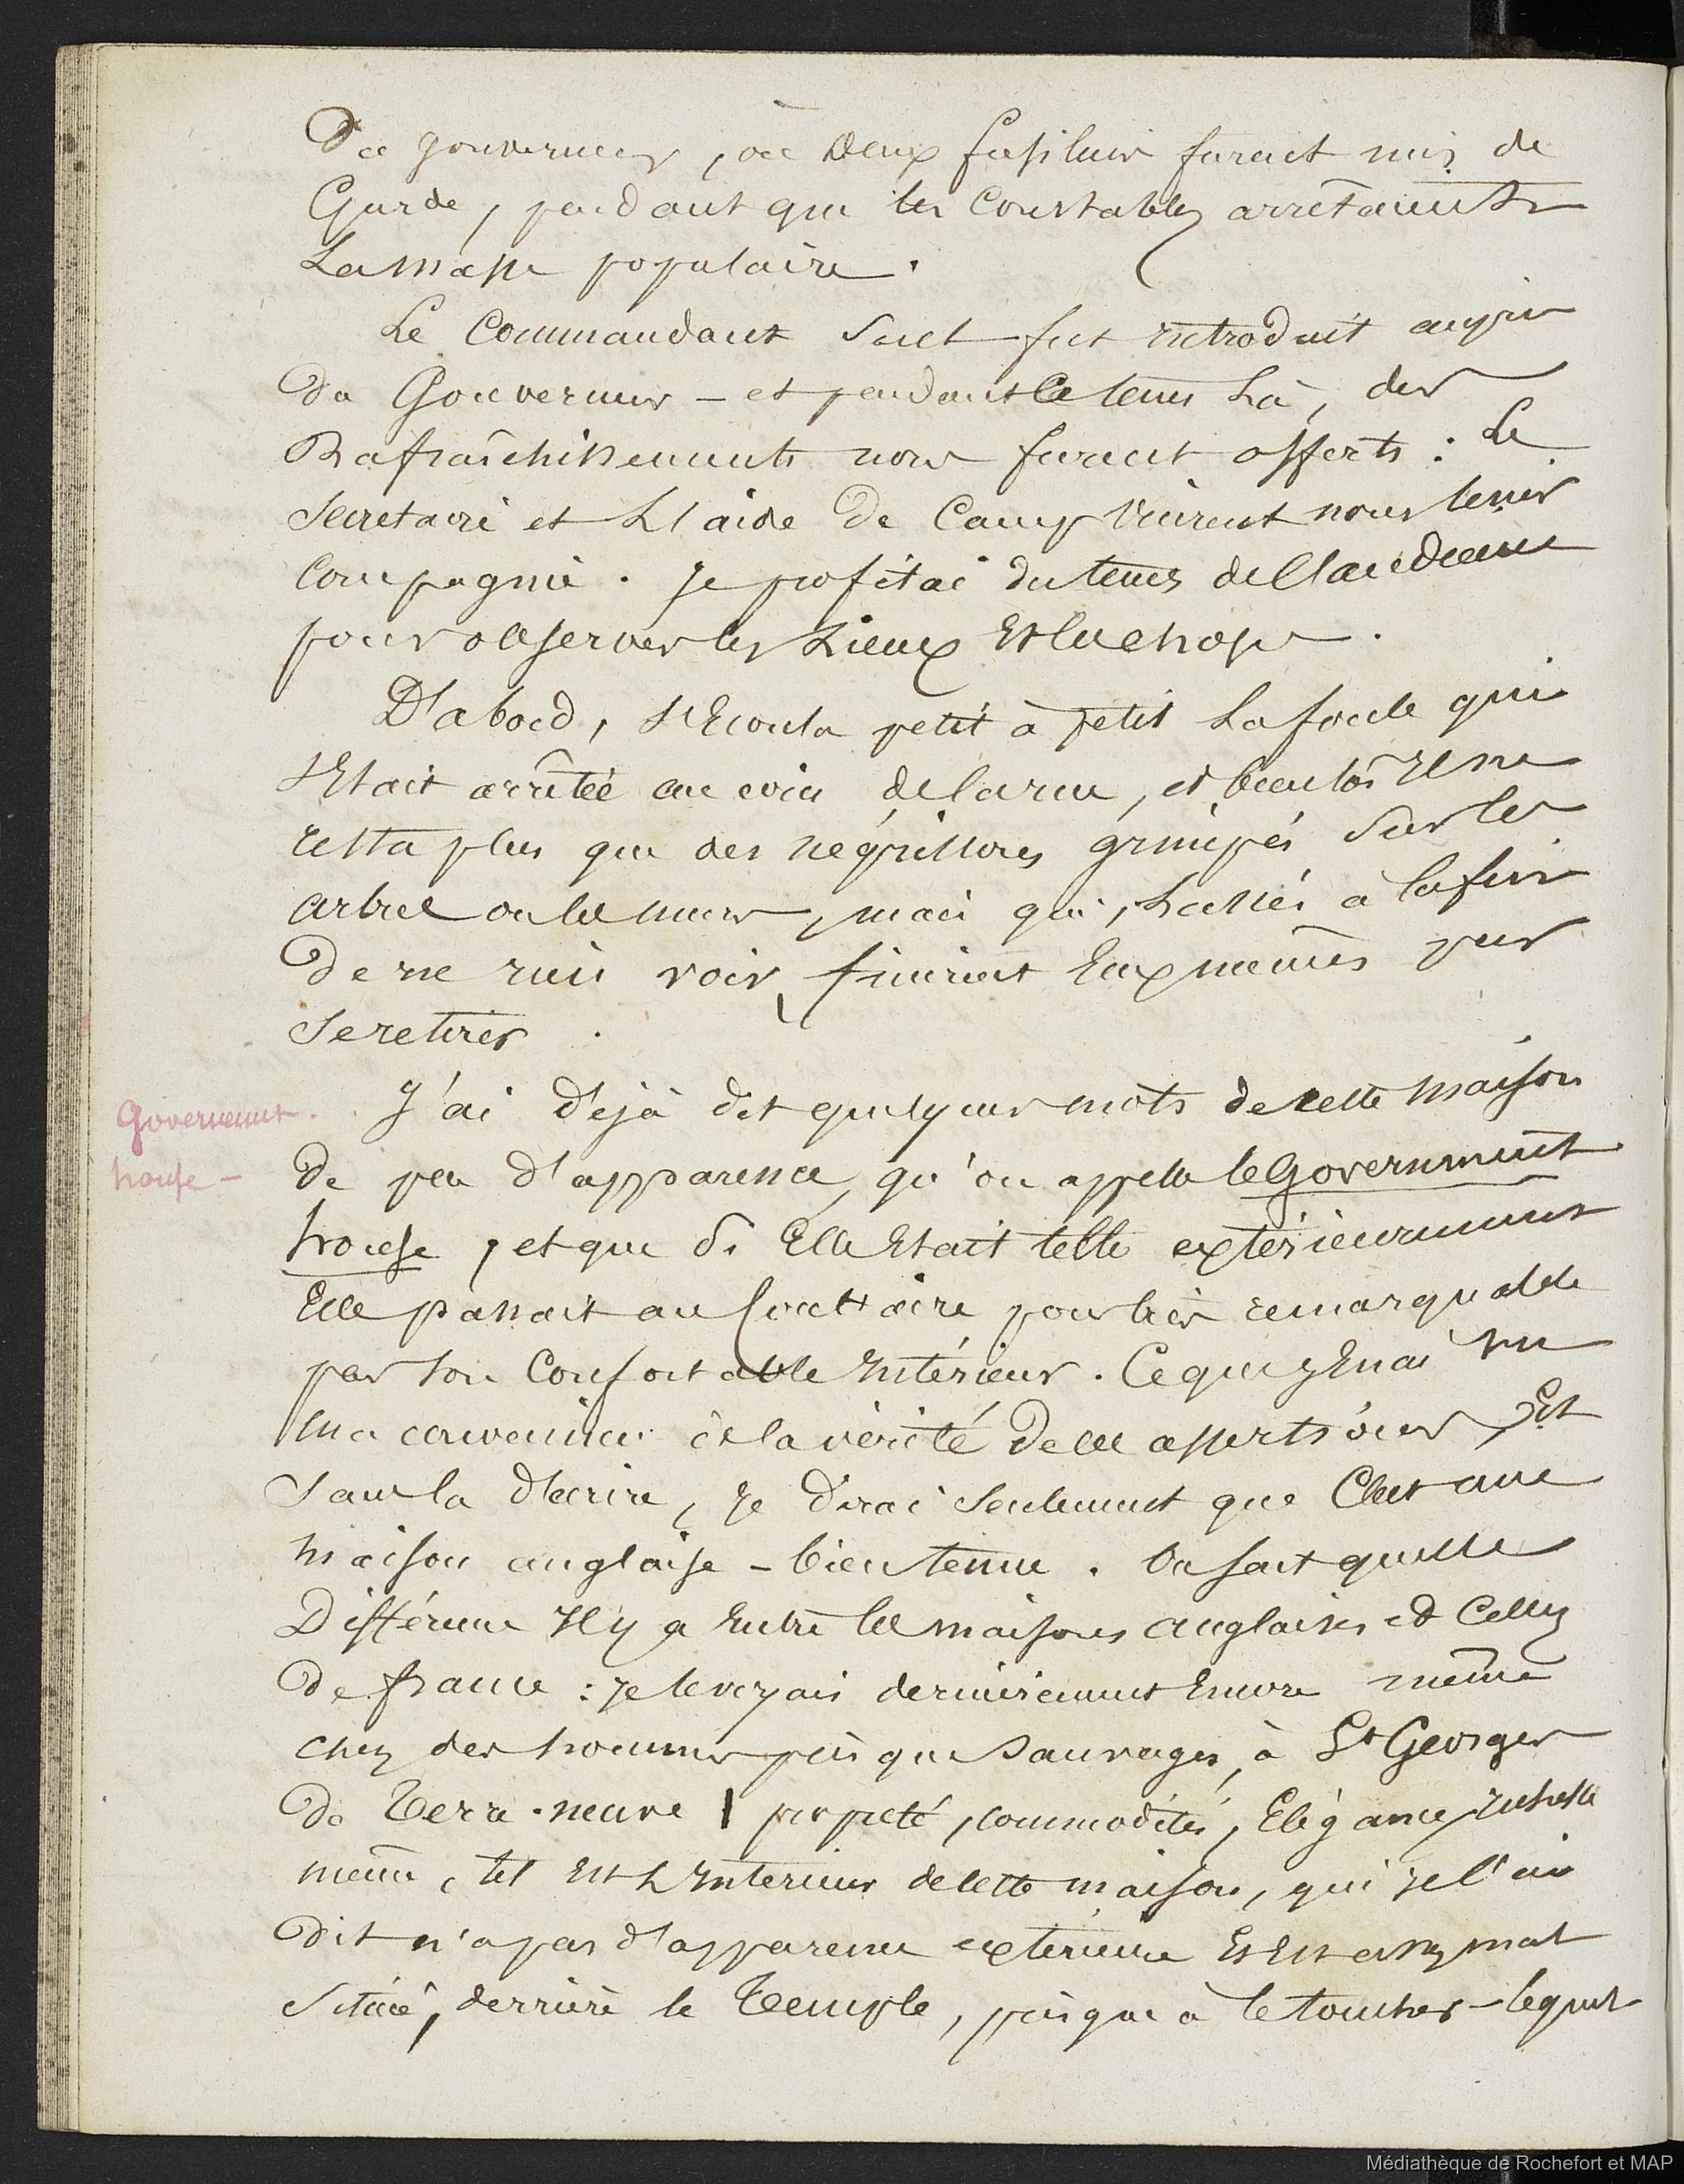 Du gouverneur, où Deux fusiliers furent mis de
Garde, pendant que les Constables arrêtaient
La masse populaire.
Le Commandant seul fut introduit auprès
du Gouverneur - et pendant ce tems Là, des
Rafraîchissements nous furent offerts : Le
Secretaire et L'aide De Camp vinrent nous tenir
Compagnie. Je profitai du tems de l'audience
pour observer les Lieux Et les choses.
D'abord, s'Ecoula petit à petit La foule qui
s'Etait arrêtée au coin de la rue, et bientôt Il ne
resta plus que des négrillons grimpés sur les
arbres ou les murs, mais qui, Lassés à la fin
De ne rien voir, finirent Eux mêmes par
se retirer.
Government.
house -
J'ai déjà dit quelques mots de cette maison
De peu d'apparence, qu'on appelle le Government
house, et que si Elle Etait telle extérieurement
Elle passait au contraire pour très remarquable
par son Confortable Intérieur. Ce que j'En ai vu
m'a convaincu de la vérité De ces assertions, Et
Sans la décrire, Je dirai seulement que C'est une
maison anglaise - bien tenue. On sait quelle
Différence Il y a Entre les maisons anglaises et Celles
De france : je le voyais dernièrement Encore même
chez des hommes presque sauvages, à St Georges
De Terre-neuve | propreté, commodités, Elégance, richesse
même, tel Est L'Interieur de cette maison, qui je l'ai
Dit n'a pas d'apparence exterieure Et Est assez mal
Située, derrière le Temple, presque à le toucher - lequel
Médiathèque de Rochefort et MAP